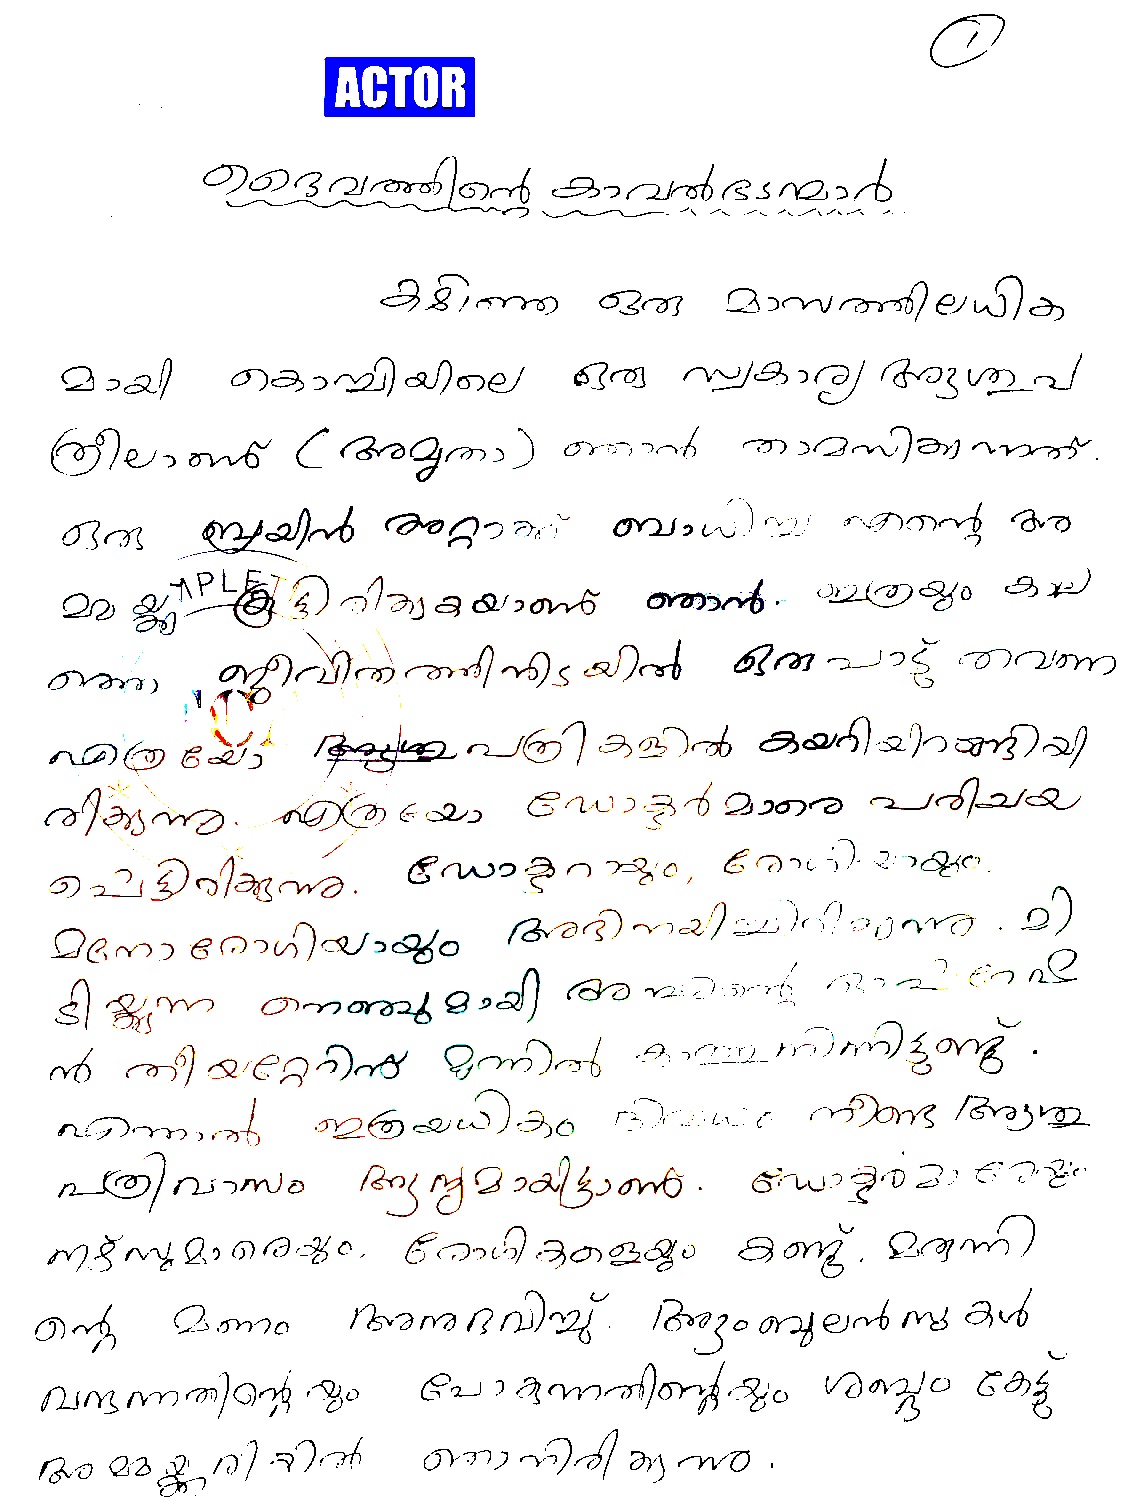 1
ACTOR
ദൈവത്തിന്റെ കാവൽഭടന്മാർ
കഴിഞ്ഞ ഒരു മാസത്തിലധിക
മായി കൊച്ചിയിലെ ഒരു സ്വകാര്യ ആശുപ
ത്രീലാണ് (അമൃതാ) ഞാൻ താമസിക്കുന്നത്.
ഒരു ബ്രയിൻ അറ്റാക്ക് ബാധിച്ച എന്റെ അ
മ്മയ്ക്കു കൂട്ടിരിക്കുകയാണ് ഞാൻ. ഇത്രയും കാല
ത്തെ ജീവിതത്തിനിടയിൽ ഒരുപാട് തവണ
എത്രയോ പത്രികളിൽ കയറിയിറങ്ങിയി
രിക്കുന്നു. എത്രയോ ഡോക്ടർമാരെ പരിചയ
പ്പെട്ടിരിക്കുന്നു. ഡോക്ടറായും, രോഗിയായും.
മനോരോഗിയായും അഭിനയിച്ചിരിക്കുന്നു. മി
ടിയ്ക്കുന്ന നെഞ്ചുമായി അമ്മയുടെ ഓപ്പറേഷ
ൻ തീയറ്ററിന് മുന്നിൽ കാത്തുനിന്നിട്ടുണ്ട്.
എന്നാൽ ഇത്രയധികം ദിവസം നീണ്ട ആശു
പത്രിവാസം ആദ്യമായിട്ടാണ്. ഡോക്ടർമാരേയും
നഴ്സുമാരെയും. രോഗികളെയും കണ്ട്. മരുന്നി
ന്റെ മണം അനുഭവിച്ച്. ആംബുലൻസുകൾ
വരുന്നതിന്റെയും പോകുന്നതിന്റെയും ശബ്ദം കേട്ട്
അമ്മയ്ക്കരികിൽ ഞാനിരിക്കുന്നു.